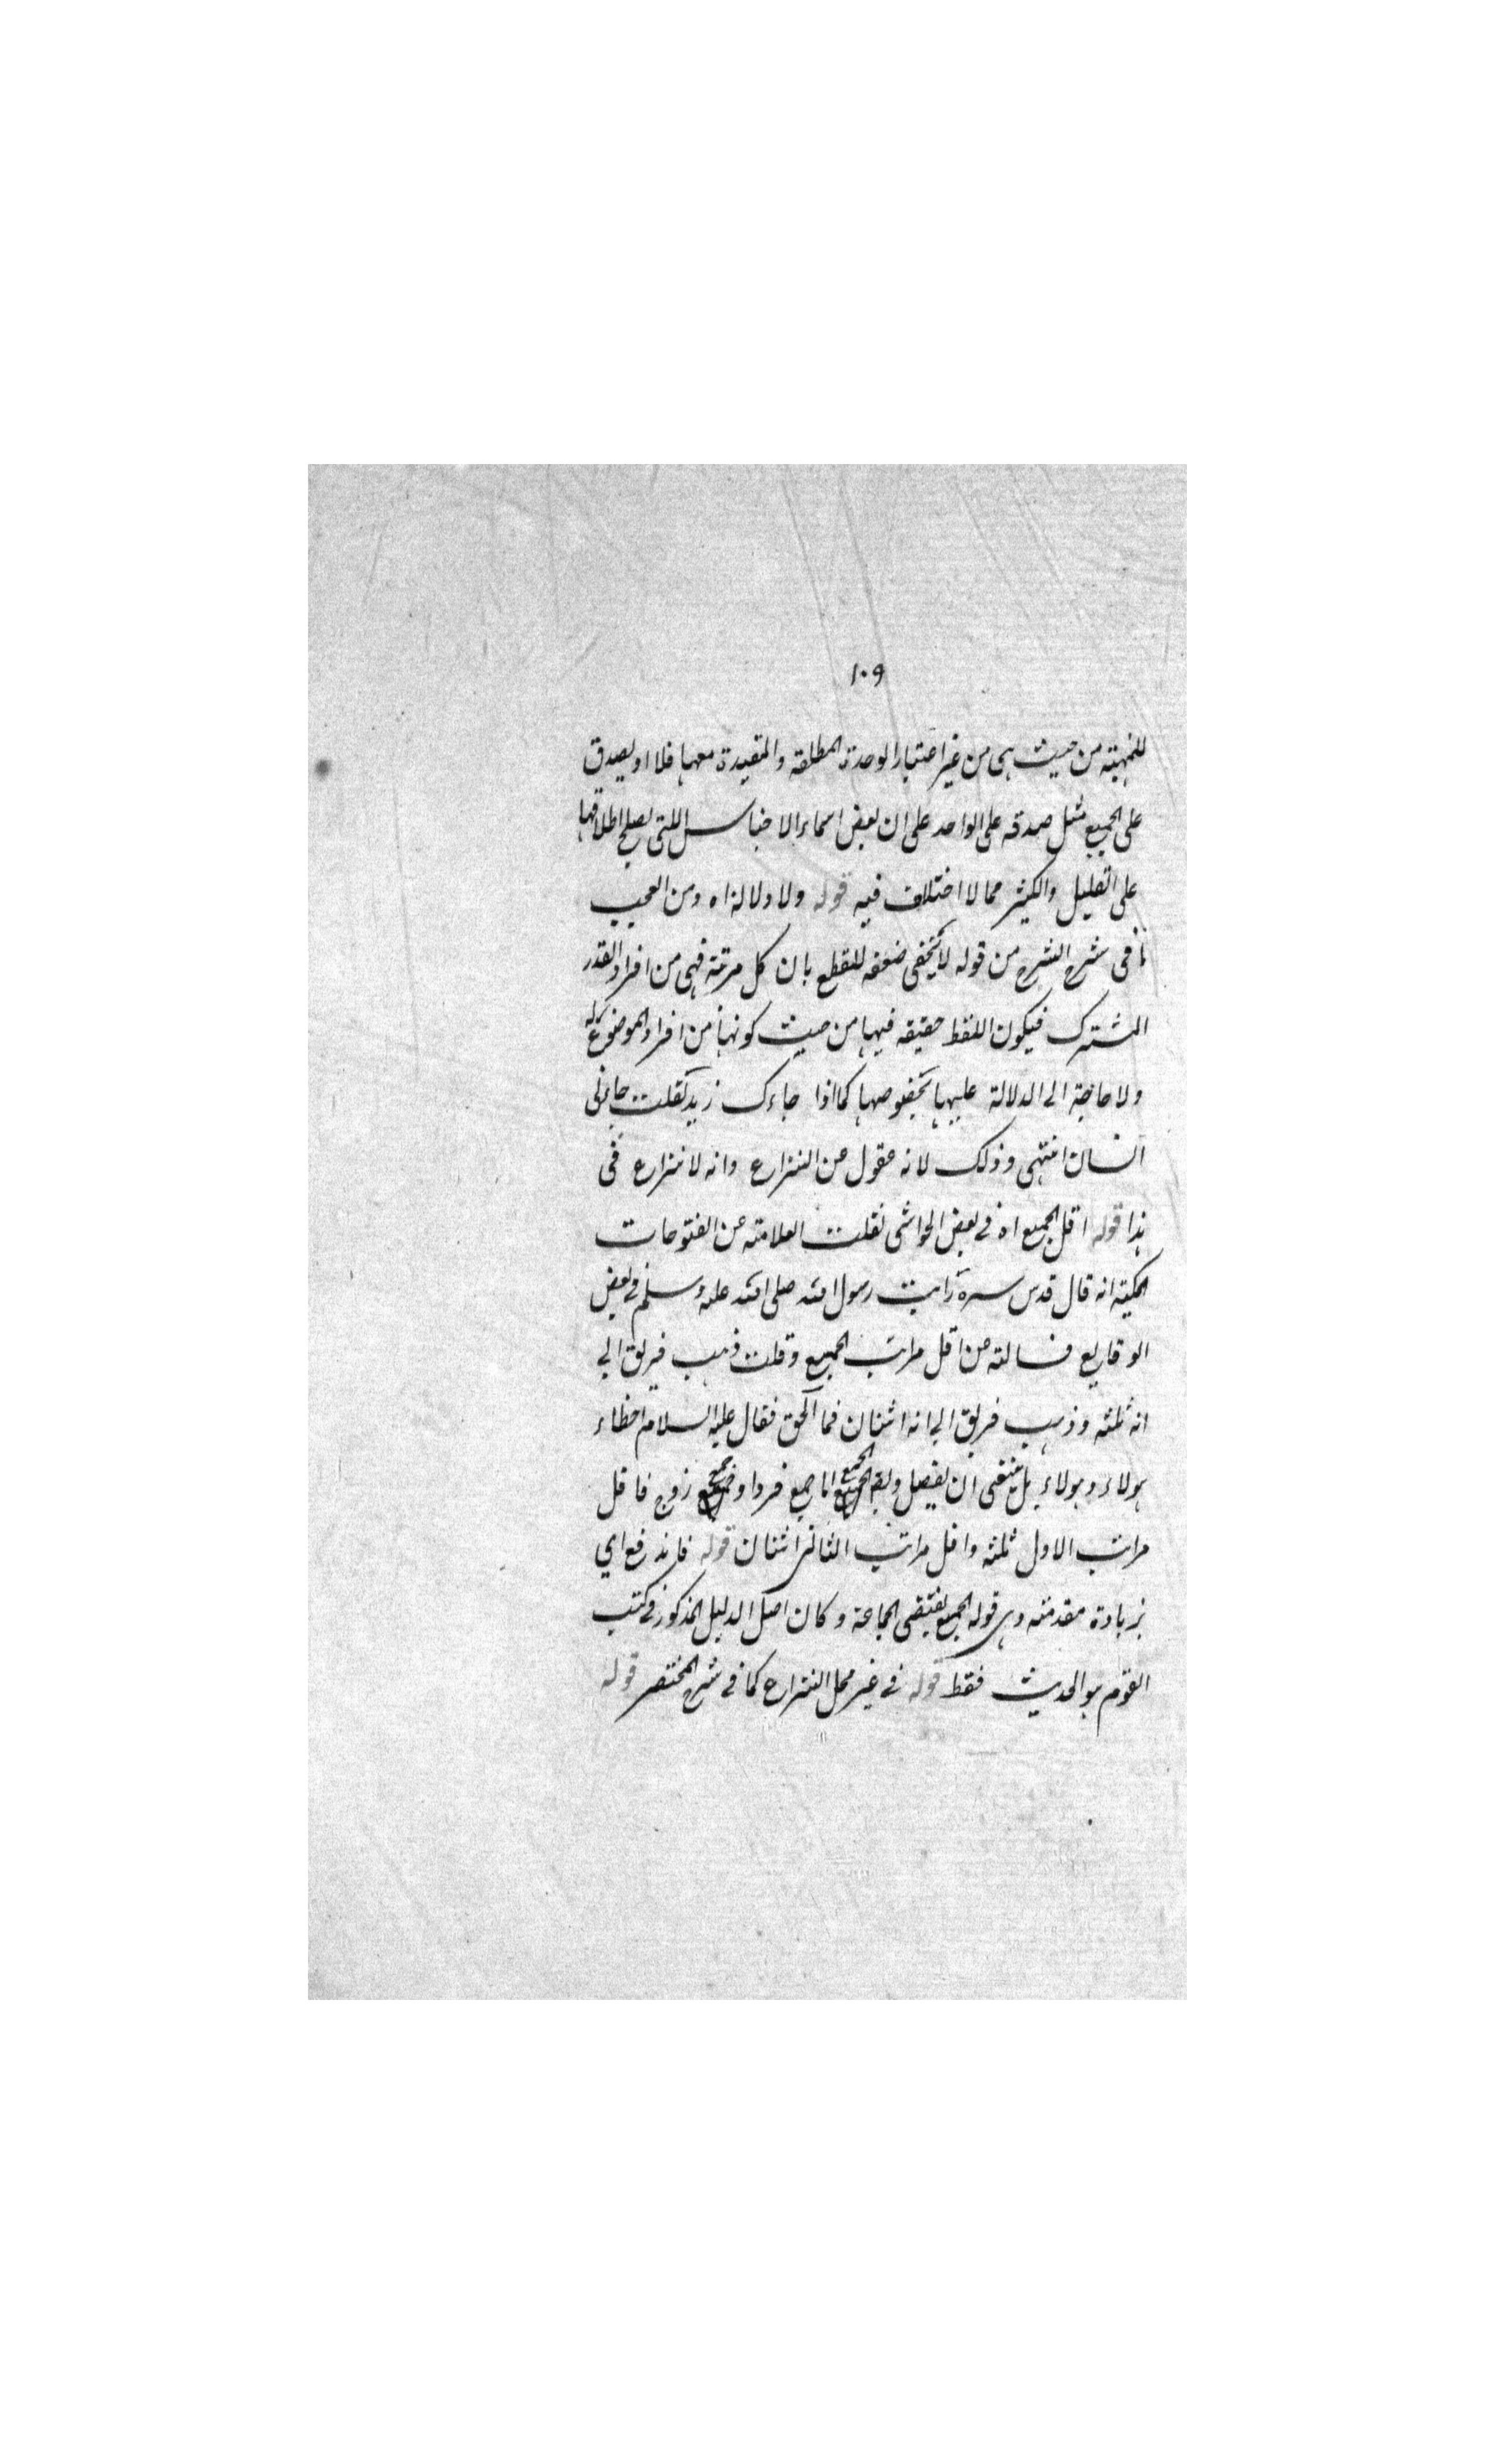 ١٠٩
للمهية من حيث هى من غير اعتبار الوحدة المطلقة والمقيدة معها فلا او يصدق
على الجميع مثل صدقه على الواحد على ان بعض اسماء الاجناس اللتى يصلح اطلاقها
على القليل والكثير مما لا اختلاف فيه قوله ولا دلالة اه ومن العجب
ما فى شرح الشرح من قوله لا يخفى ضعفه للقطع بان كل مرتبة فهى من افراد القدر
المشترك فيكون اللفظ حقيقه فيها من حيث كونها من افراد الموضوع له
ولا حاجة الى الدلالة عليها بخصوصها كما اذا جاءك زيد فقلت جاءنى
انسان انتهى وذلك لانه عقول عن النزاع وانه لا نزاع فى
هذا قوله اقل الجمع اه فى بعض الحواشى نقلت العلامة عن الفتوحات
المكية انه قال قدس سره رايت رسول الله صلى الله عليه وسلم فى بعض
الوقايع فسالته عن اقل مراتب الجمع وقلت ذهب فريق الى
انه ثلثه وذهب فريق الى انه اثنان فما الحق فقال عليه السلام اخطاء
هولاء وهولاء بل ينبغى ان يفصل ويقه الجمع اما جمع فرد او جمع زوج فاقل
مراتب الاول ثلثه واقل مراتب الثانى اثنان قوله فاندفع اى
بزيادة مقدمته وهى قوله الجمع يقتضى الجماعة وكان اصل الدليل المذكور فى كتب
القوم هو الحديث فقط قوله فى غير محل النزاع كما فى شرح المختصر قوله